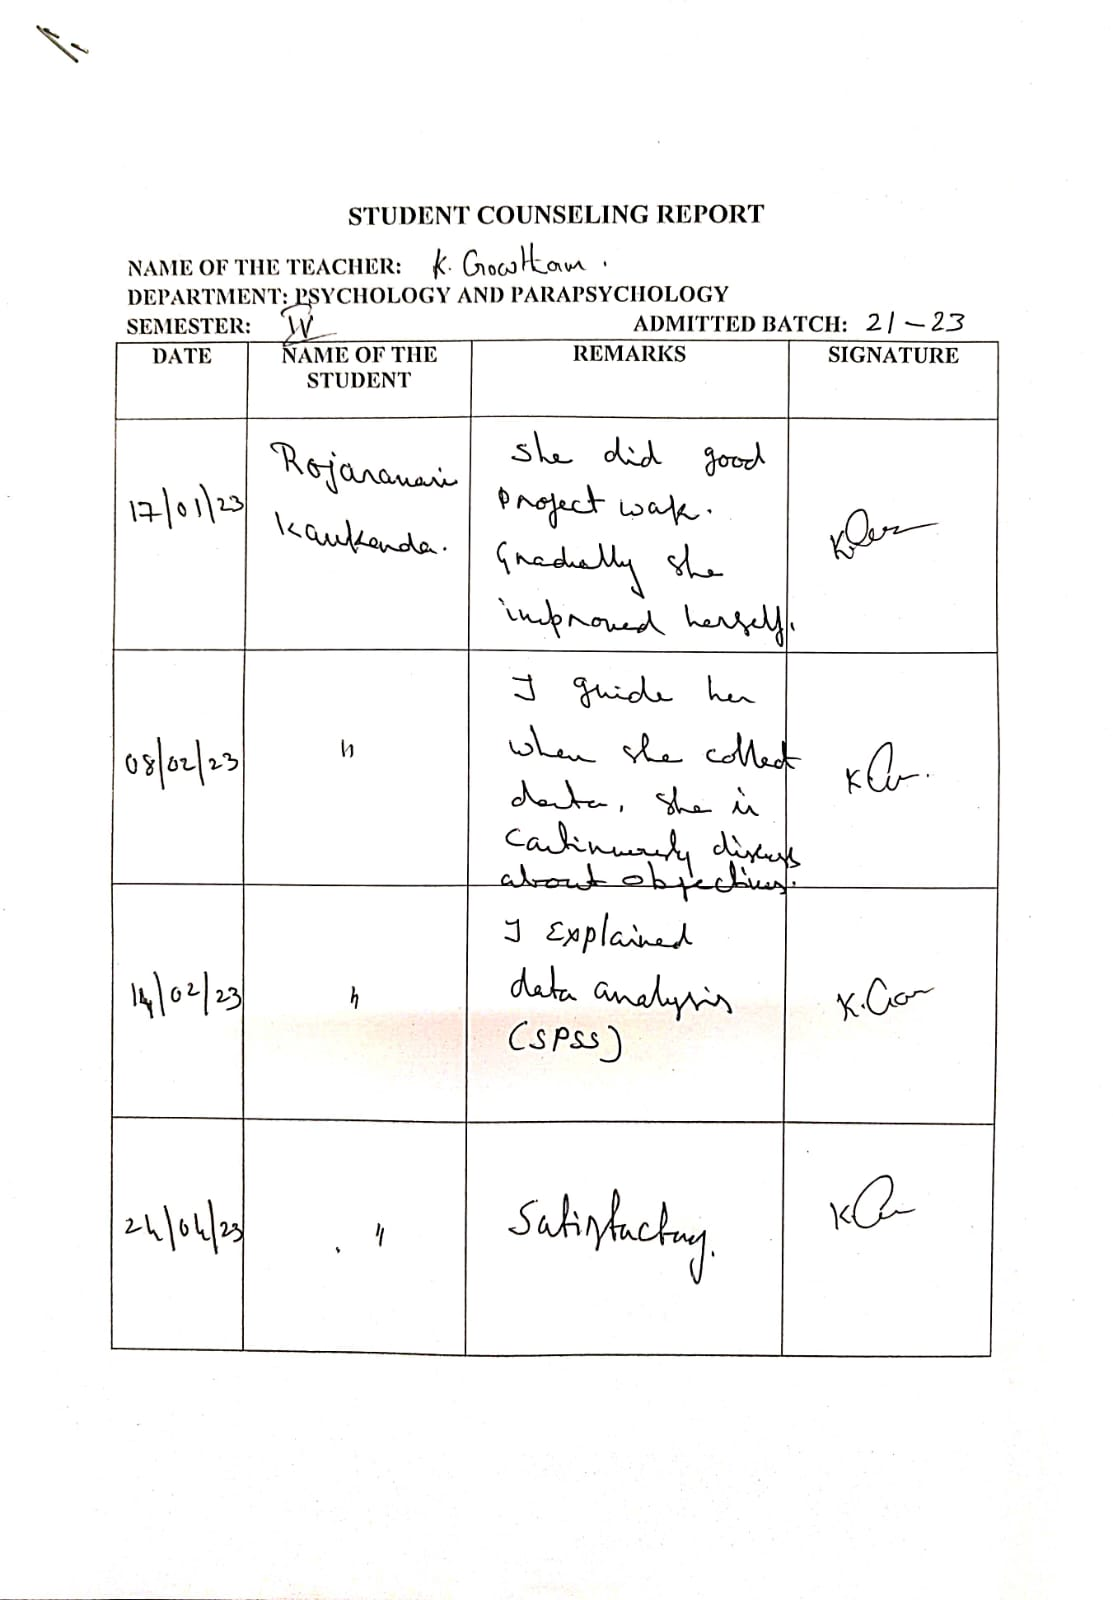 STUDENT COUNSELING REPORT
NAME OF THE TEACHER: K. Gowtham.
DEPARTMENT: PSYCHOLOGY AND PARAPSYCHOLOGY
SEMESTER: IV ADMITTED BATCH: 21-23
DATE NAME OF THE REMARKS SIGNATURE
STUDENT
17/01/23 Rojaramani she did good
project work.
Gradually she
improved herself.
08/02/23 " I guide her
when she collect
data, she is
continuously discuss
about objectives.
14/02/23 " I Explained
data analysis
(SPSS)
24/04/23 " Satisfactory.